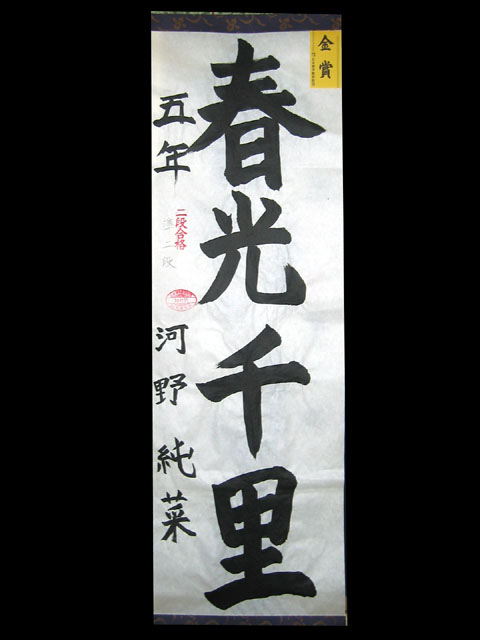 金賞
春光千里
五年
二段合格
準二段
河野純菜